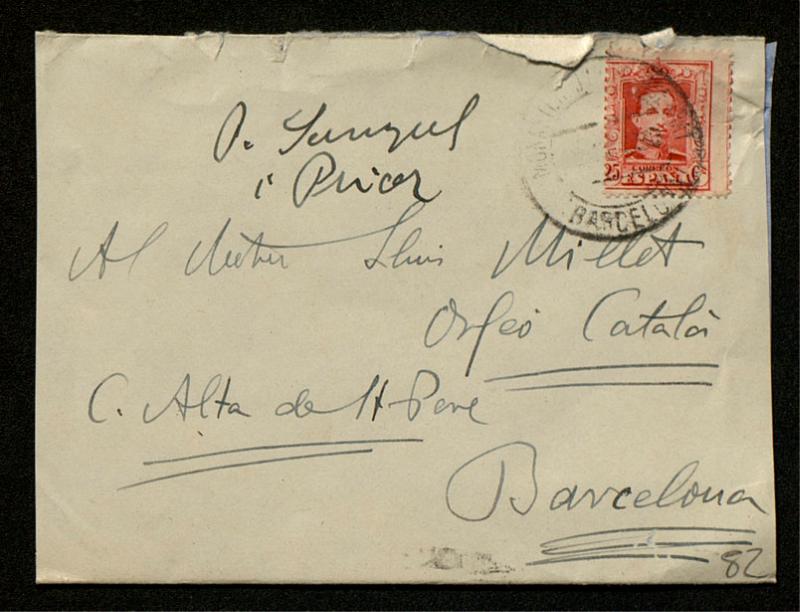 P. Sunyol
i Pricor
Al Mestre Lluís Millet
Orfeó Català
C. Alta de St Pere
Barcelona
82
BARCELONA
CORREOS
25 ESPAÑA